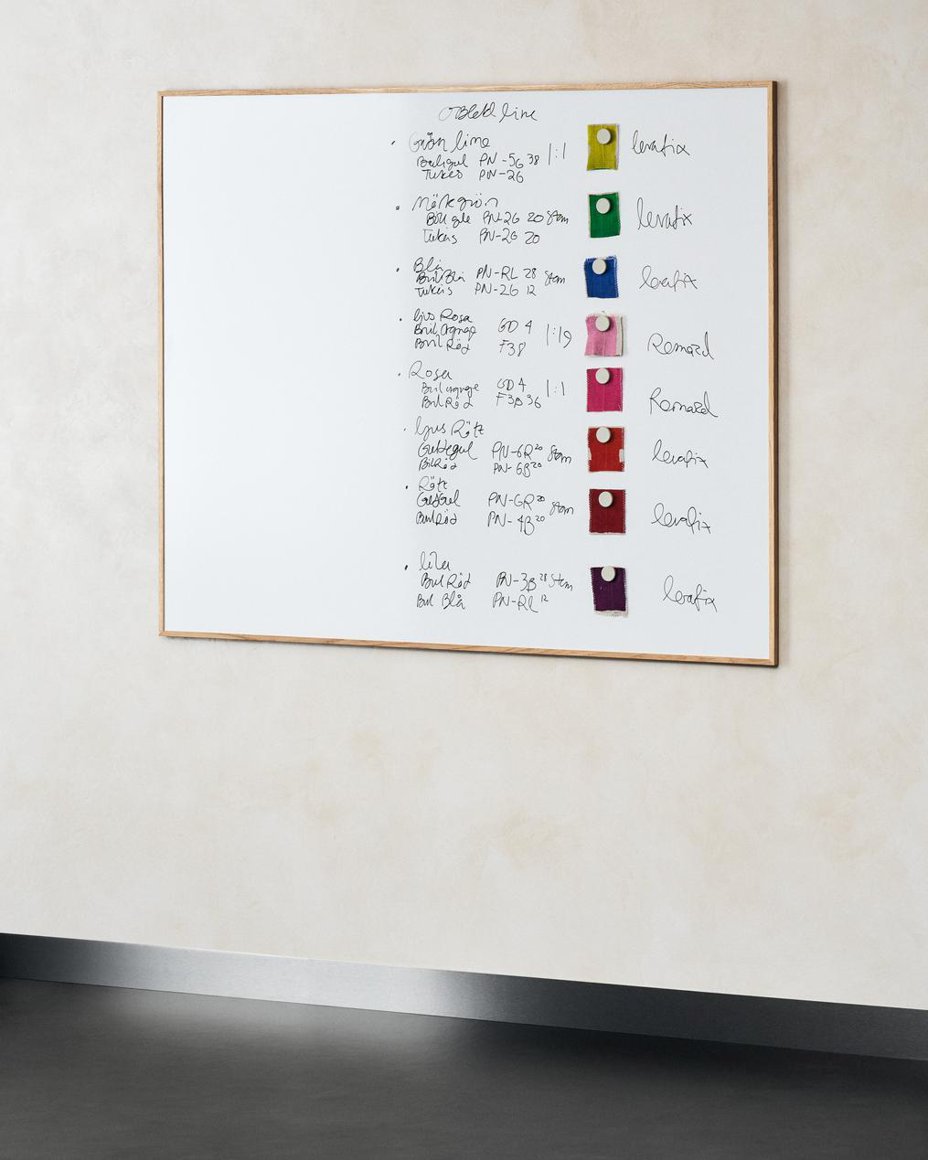 line
Grön lime 1:1 levafix
PN-5G 38
Tukes PN-26
Mörkgrön levafix
PN-2G 20 Stam
Tukis PN-2G 20
Blå levafix
Bril Blå PN-RL 28 Stam
Tukis PN-2G 12
ljus Rosa 1:19 Remazol
GD 4
Bril Röd F3B
Rosa 1:1 Remazol
GD 4
Bril Röd F3B 36
ljus Rött levafix
PN-6R 20 Stam
Bil Röd PN-6B 20
Rött levafix
PN-GR 20 Stam
Bril Röd PN-4B 20
lila levafix
Bril Röd PN-3B 28 Stam
Bril Blå PN-RL 12